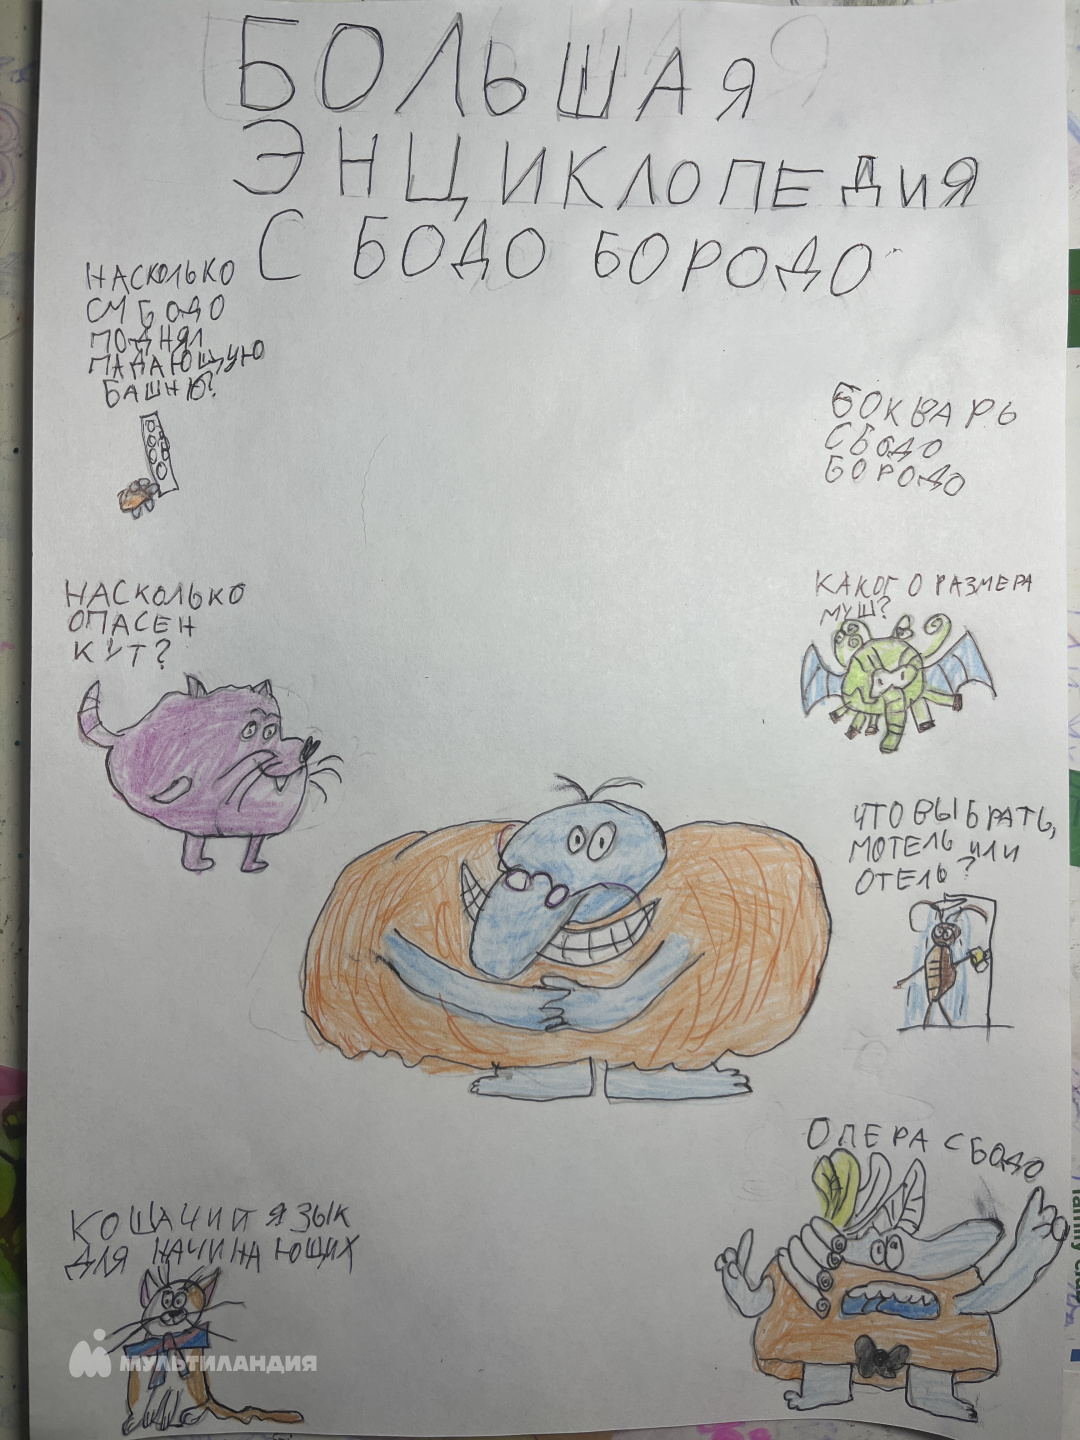 БОЛЬШАЯ
ЭНЦИКЛОПЕДИЯ
С БОДО БОРОДО
НАСКОЛЬКО
СМ БОДО
ПОДНЯЛ
ПАДАЮЩУЮ
БАШНЮ?
БОКВАРЬ
С БОДО
БОРОДО
НАСКОЛЬКО
ОПАСЕН
КУТ?
КАКОГО РАЗМЕРА
МУШ?
ЧТО ВЫБРАТЬ,
МОТЕЛЬ ИЛИ
ОТЕЛЬ?
ОПЕРА С БОДО
КОШАЧИЙ ЯЗЫК
ДЛЯ НАЧИНАЮЩИХ
МУЛЬТИЛАНДИЯ